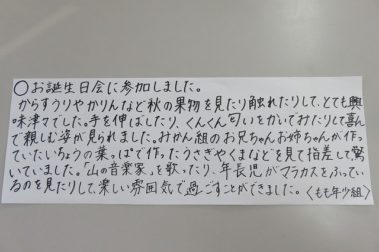 ○お誕生日会に参加しました。
からすうりやかりんなど秋の果物を見たり触れたりして、とても興
味津々でした。手を伸ばしたり、くんくん匂いをかいでみたりして喜ん
で親しむ姿が見られました。みかん組のお兄ちゃんお姉ちゃんが作っ
ていたいちょうの葉っぱで作ったうさぎやくまなどを見て指差して驚
いていました。「山の音楽家」を歌ったり、年長児がマラカスをふってい
るのを見たりして、楽しい雰囲気で過ごすことができました。〈もも年少組〉